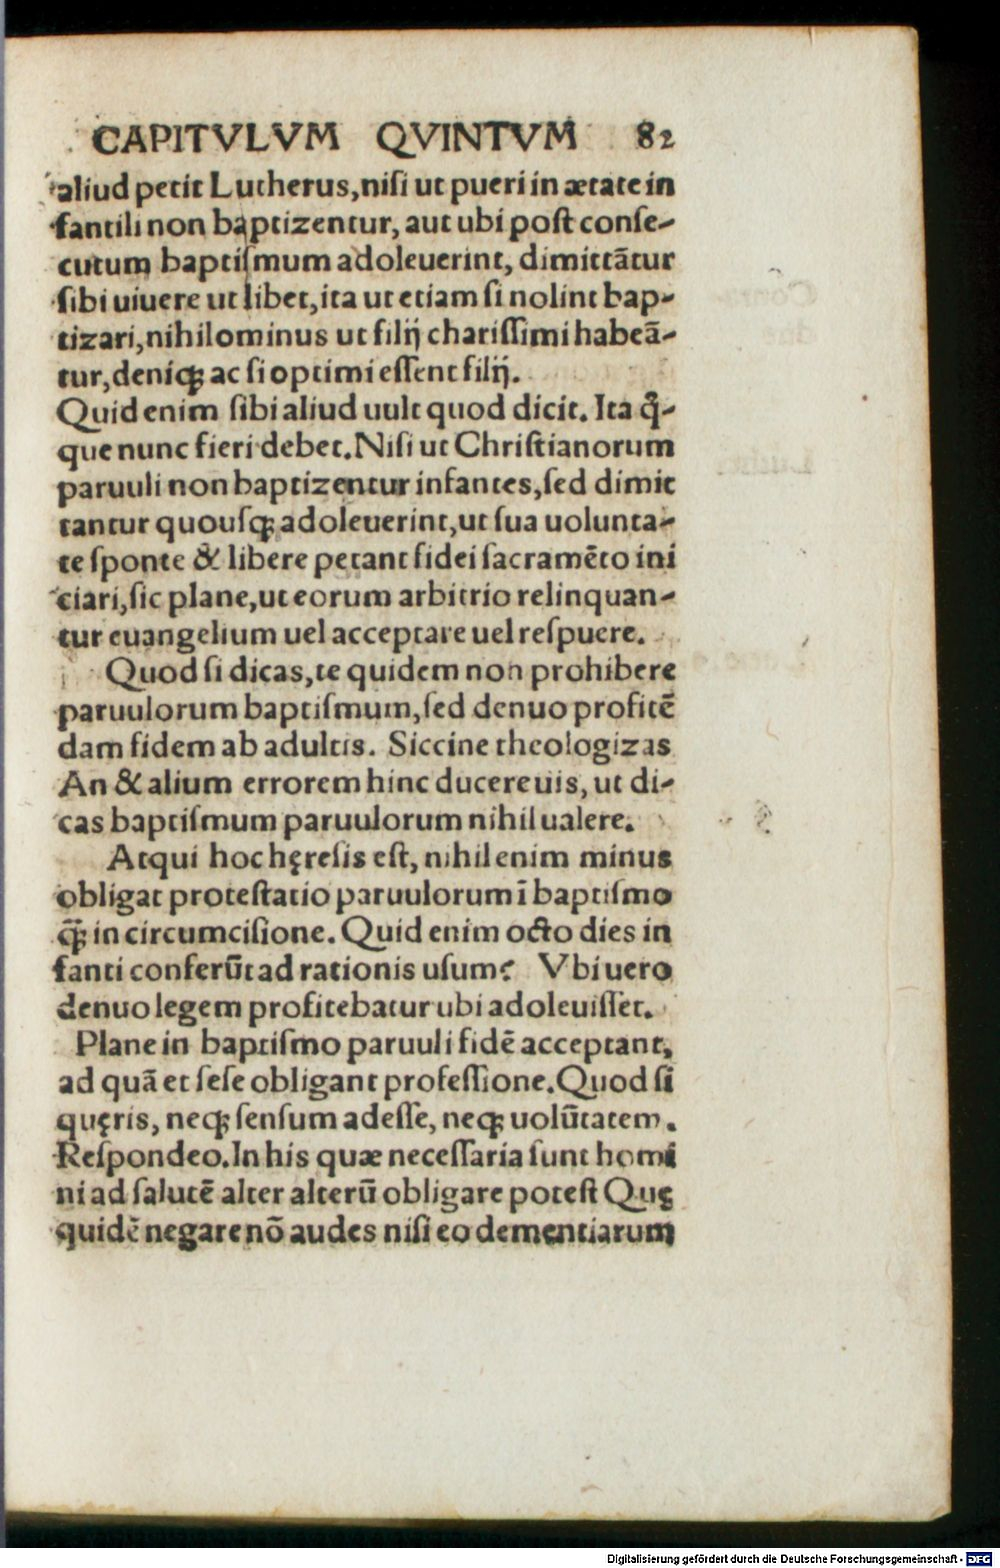 CAPITVLVM QVINTVM 82
aliud petit Lutherus,nisi ut pueri in ætate in
fantili non baptizentur, aut ubi post conse-
cutum baptismum adoleuerint, dimittãtur
sibi uiuere ut libet,ita ut etiam si nolint bap-
tizari,nihilominus ut filij charissimi habeã-
tur,deniqꝫ ac si optimi essent filij.
Quid enim sibi aliud uult quod dicit. Ita q̃-
que nunc fieri debet.Nisi ut Christianorum
paruuli non baptizentur infantes,sed dimit
tantur quousqꝫ adoleuerint,ut sua uolunta-
te sponte & libere petant fidei sacramẽto ini
ciari,sic plane,ut eorum arbitrio relinquan-
tur euangelium uel acceptare uel respuere.
Quod si dicas,te quidem non prohibere
paruulorum baptismum,sed denuo profitẽ
dam fidem ab adultis. Siccine theologizas
An & alium errorem hinc ducere uis, ut di-
cas baptismum paruulorum nihil ualere.
Atqui hoc hęresis est, nihil enim minus
obligat protestatio paruulorum ĩ baptismo
q̃ꝫ in circumcisione. Quid enim octo dies in
fanti conferũt ad rationis usum? Vbi uero
denuo legem profitebatur ubi adoleuisset.
Plane in baptismo paruuli fidẽ acceptant,
ad quã et sese obligant professione.Quod si
quęris, neqꝫ sensum adesse, neqꝫ uolũtatem.
Respondeo.In his quæ necessaria sunt homi
ni ad salutẽ alter alterũ obligare potest Quę
quidẽ negare nõ audes nisi eo dementiarum
Digitalisierung gefördert durch die Deutsche Forschungsgemeinschaft - DFG